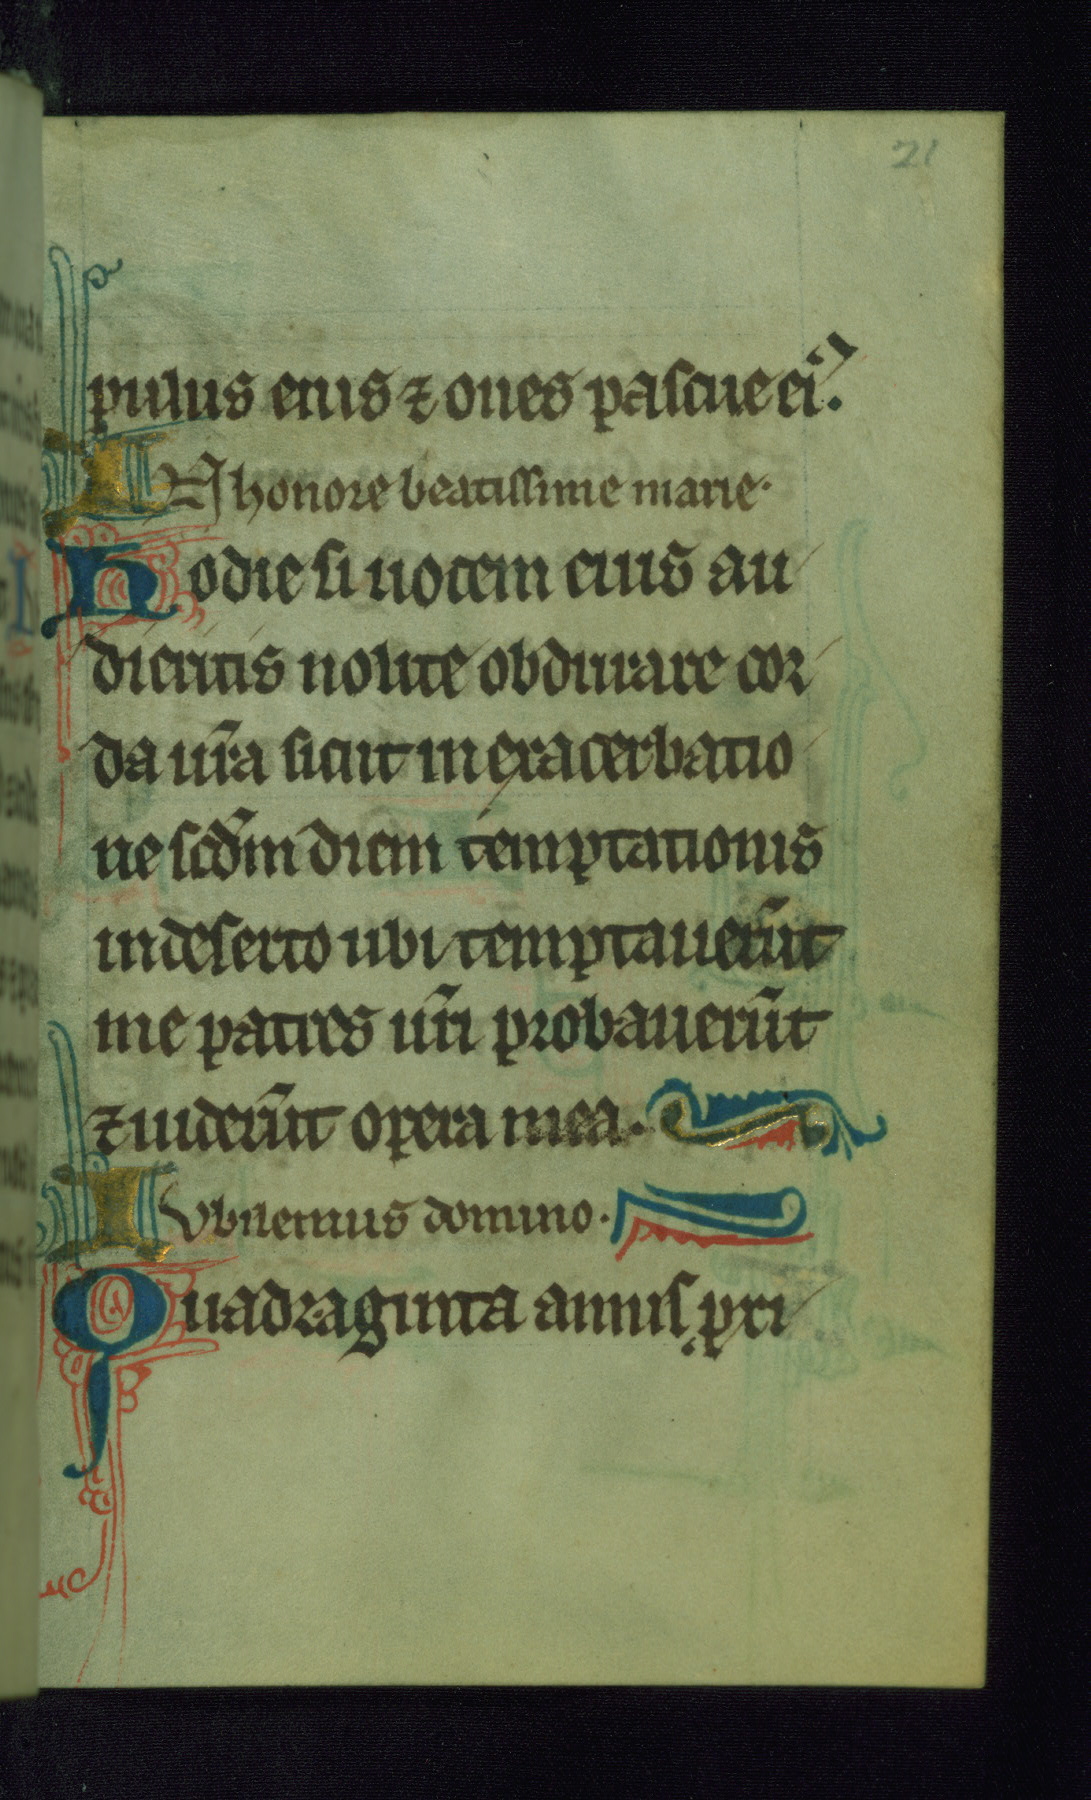 21
pulus eius ⁊ oues pascue ei᷒.
IN honore beatissime marie.
Hodie si uocem eius au
dieritis nolite obdurare cor
da ur̄a sicut in exacerbatio
ne scd̄m diem temptationis
in deserto ubi temptauerūt
me patres ur̄i probauerūt
⁊ uiderūt opera mea.
Iubilemus domino.
Quadraginta annis pxi